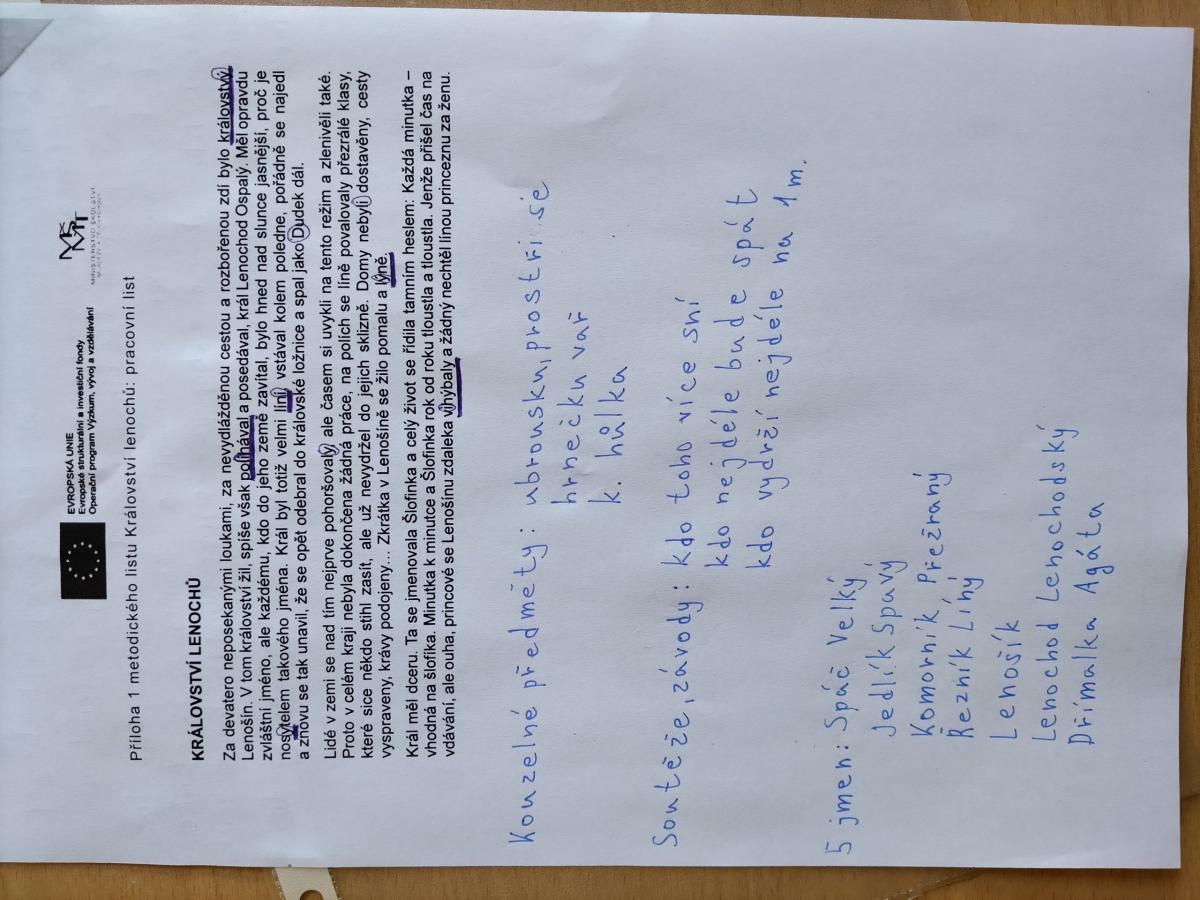 EVROPSKÁ UNIE
Evropské strukturální a investiční fondy
Operační program Výzkum, vývoj a vzdělávání
MŠMT
MINISTERSTVO ŠKOLSTVÍ
MLÁDEŽE A TĚLOVÝCHOVY
Příloha 1 metodického listu Království lenochů: pracovní list
KRÁLOVSTVÍ LENOCHŮ
Za devatero neposekanými loukami, za nevydlážděnou cestou a rozbořenou zdí bylo královstvý
Lenošín. V tom království žil, spíše však políhával a posedával, král Lenochod Ospalý. Měl opravdu
zvláštní jméno, ale každému, kdo do jeho země zavítal, bylo hned nad slunce jasnější, proč je
nosytelem takového jména. Král byl totiž velmi líní, vstával kolem poledne, pořádně se najedl
a znovu se tak unavil, že se opět odebral do královské ložnice a spal jako Dudek dál.
Lidé v zemi se nad tím nejprve pohoršovaly, ale časem si uvykli na tento režim a zlenivěli také.
Proto v celém kraji nebyla dokončena žádná práce, na polích se líně povalovaly přezrálé klasy,
které sice někdo stihl zasít, ale už nevydržel do jejich sklizně. Domy nebyli dostavěny, cesty
vyspraveny, krávy podojeny... Zkrátka v Lenošíně se žilo pomalu a lýně.
Král měl dceru. Ta se jmenovala Šlofinka a celý život se řídila tamním heslem: Každá minutka –
vhodná na šlofíka. Minutka k minutce a Šlofinka rok od roku tloustla a tloustla. Jenže přišel čas na
vdávání, ale ouha, princové se Lenošínu zdaleka vihýbaly a žádný nechtěl línou princeznu za ženu.
Kouzelné předměty: ubrousku, prostři se
hrnečku vař
k. hůlka
Soutěže, závody: kdo toho více sní
kdo nejdéle bude spát
kdo vydrží nejdéle na 1 m.
5 jmen: Spáč Velký
Jedlík Spavý
Komorník Přežraný
Řezník Líný
Lenošík
Lenochod Lenochodský
Dřímalka Agáta